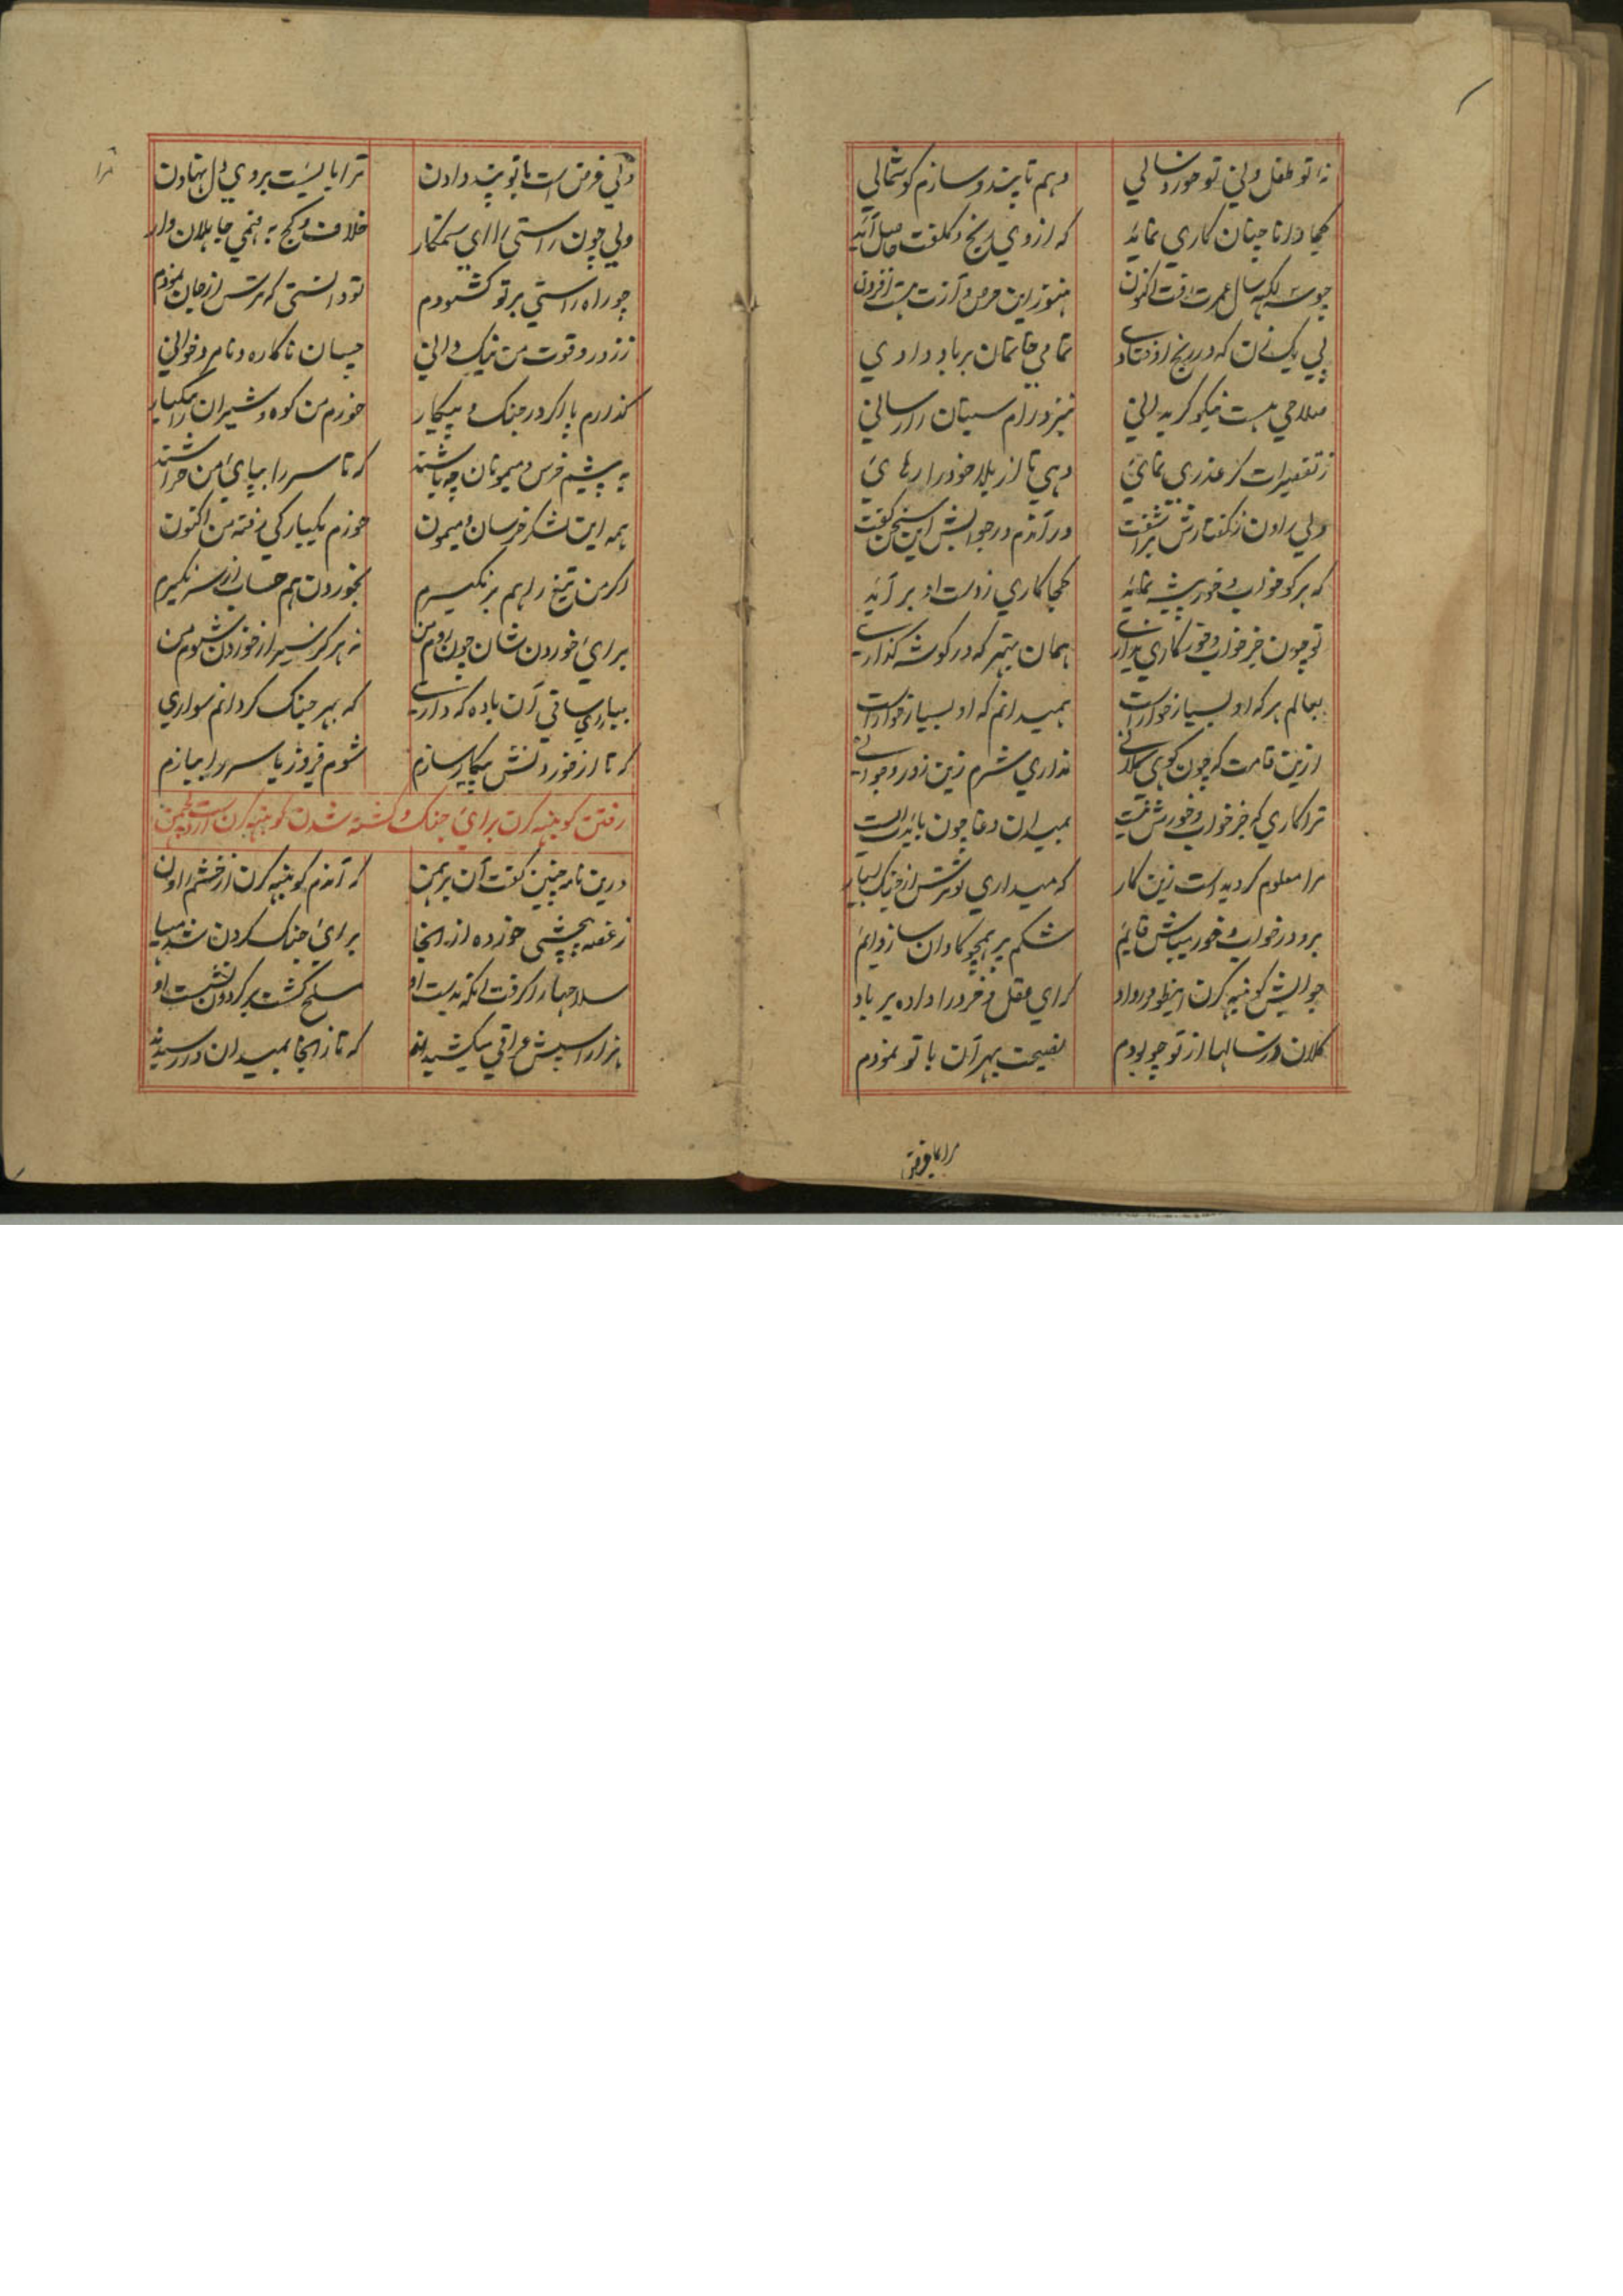 نه تو طفل ولی تو خورد سالی
دهم تا پند و سازم کوشمالی
کجا دانا چنان کاری نماید
که از وی رنج و کلفت حاصل آید
لکهه سال عمرت رفت اکنون
هنوز این حرص و آزت هست افزون
پی یک زن که در رنج اوفتادی
تمامی خانمان برباد دادی
صلاحی هست نیکو کر بدانی
بنزد رام سیتان را رسانی
ز تقصیرات کر عذری نمائی
دهی تا از بلا خود را رهائی
ولی راون ز کفتارش بر آشفت
در آندم در جوابش این سخن کفت
که هر کو خواب و خور پیشه نماید
کجا کاری ز دست او بر آید
تو چون جز خواب و خور کاری نداری
همان بهتر که در کوشه کذاری
بعالم هر که او بسیار خوار است
همیدانم که او بسیار خوار است
ازین قامت که چون کوهی کلانی
نداری شرم زین زور و جوانی
ترا کاری که جز خواب و خورش نیست
بمیدان وغا چون بایدت ایست
مرا معلوم کردید است زین کار
که میداری تو ترس از جنک بسیار
برو در خواب و خور میباش قایم
شکم پر همچو کاوان ساز دایم
جوابش کونبهه کرن اینطور در داد
که ای عقل و خرد را داده بر باد
کلان در سالها از تو چو بودم
نصیحت بهر آن با تو نمودم
مرا کا فرض
ترا
ولی فرض است با تو پند دادن
ترا بایست بر وی دل نهادن
ولی چون راستی را ای ستمکار
خلاف و کج به فهمی جاهلان وار
چو راه راستی بر تو کشودم
تو دانستی که ترس از جان نمودم
ز زور و قوت من نیک دانی
چسان ناکاره و نامرد خوانی
کذارم پا اکر در جنک و پیکار
خورم من کوه و شیران را بیکبار
به پیشم خرس و میمونان چه باشند
که تا سر را بپای من خراشند
همه این لشکر خرسان و میمون
خورم یکبارکی رفته من اکنون
اکر من تیغ را هم بر نکیرم
بخوردن هم حساب از سر نکیرم
برای خوردن شان چون روم من
نه هرکز سیر از خوردن شوم من
بیا ای ساقی آن باده که داری
که بهر جنک کردانم سواری
که تا از خوردنش پیکار سازم
شوم فیروز یا سر را ببازم
رفتن کونبهه کرن برای جنک و کشته شدن کونبهه کرن از دست لچهمن
درین نامه چنین کفت آن برهمن
که آندم کونبهه کرن از خشم راون
ز غصه بخشی خورده از انجا
برای جنک کردن شد مهیا
سلاحها را کرفت انکه بدست او
مسلح کشت بر کردون نشست او
هزار اسپش عراقی میکشیدند
که تا زانجا بمیدان در رسیدند